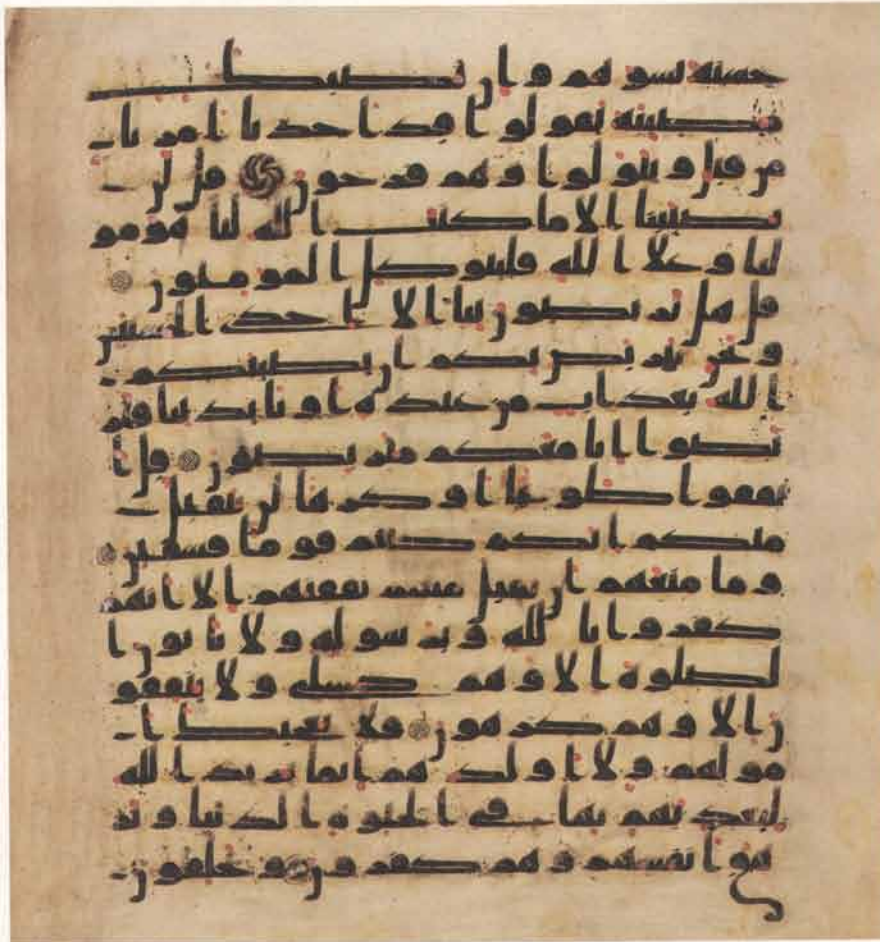 حسنه تسوهم و ان تصبك
مصيبه يقولوا قد اخذنا امرنا
من قبل و يتولوا و هم فرحون قل لن
يصيبنا الا ما كتب الله لنا هو مو
لينا و علا الله فليتوكل المومنون
قل هل تربصون بنا الا احدى الحسنيين
و نحن نتربص بكم ان يصيبكم
الله بعذاب من عنده او بايدينا فتر
بصوا انا معكم متربصون قل ا
نفقوا طوعا او كرها لن يتقبل
منكم انكم كنتم قوما فسقين
و ما منعهم ان تقبل منهم نفقتهم الا انهم
كفروا بالله و برسوله و لا ياتون ا
لصلوه الا و هم كسلى و لا ينفقو
ن الا و هم كرهون فلا تعجبك ا
مولهم و لا اولدهم انما يريد الله
ليعذبهم بها في الحيوه الدنيا و تز
هق انفسهم و هم كفرون و يحلفون